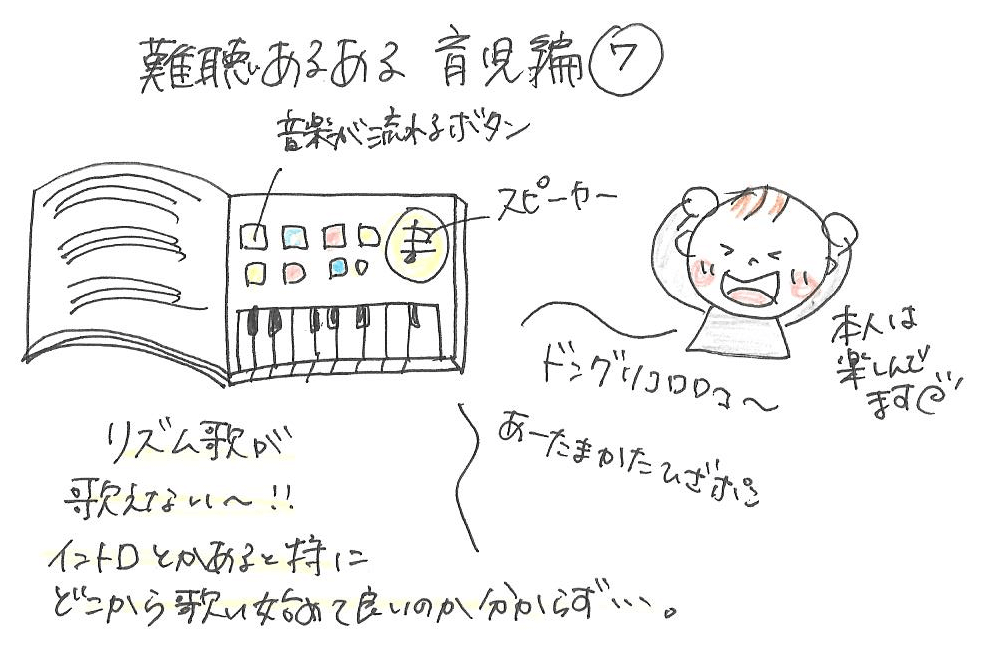 難聴あるある 育児編⑦
音楽が流れるボタン
スピーカー
本人は
楽しんで
ます
ドングリコロコロ〜
あーたまかたひざポン
リズム歌が
歌えない〜!!
イントロとかあると特に
どこから歌い始めて良いのか分からず…。